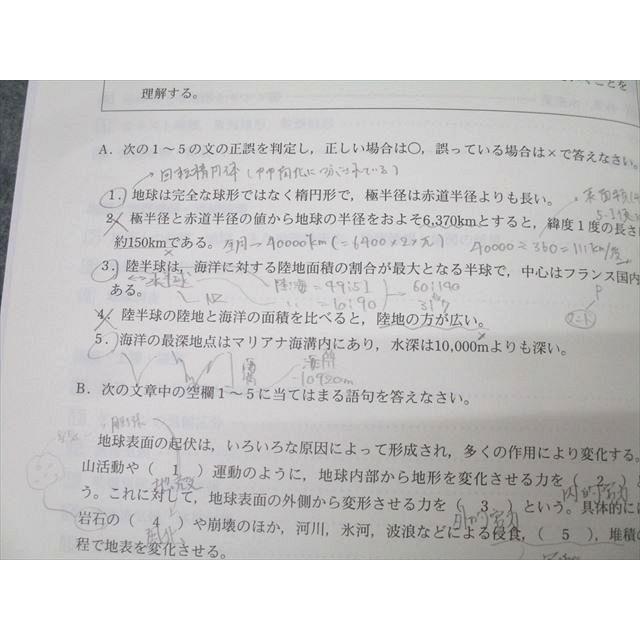 ことを
理解する。
A．次の1～5の文の正誤を判定し，正しい場合は○，誤っている場合は×で答えなさい。
1．地球は完全な球形ではなく楕円形で，極半径は赤道半径よりも長い。
2．極半径と赤道半径の値から地球の半径をおよそ6,370kmとすると，緯度1度の長さ
約150kmである。
40000km (=6400×2×π)
40000÷360=111km/度
3．陸半球は，海洋に対する陸地面積の割合が最大となる半球で，中心はフランス国内
ある。
水半球
陸:海=49:51
=10:90
4．陸半球の陸地と海洋の面積を比べると，陸地の方が広い。
5．海洋の最深地点はマリアナ海溝内にあり，水深は10,000mよりも深い。
海溝
-10920m
B．次の文章中の空欄1～5に当てはまる語句を答えなさい。
地球表面の起伏は，いろいろな原因によって形成され，多くの作用により変化する。
山活動や（ 1 ）運動のように，地球内部から地形を変化させる力を（ 2 ）と
地殻
内的営力
う。これに対して，地球表面の外側から変形させる力を（ 3 ）という。具体的には
外的営力
岩石の（ 4 ）や崩壊のほか，河川，氷河，波浪などによる侵食，（ 5 ），堆積の
風化
程で地表を変化させる。